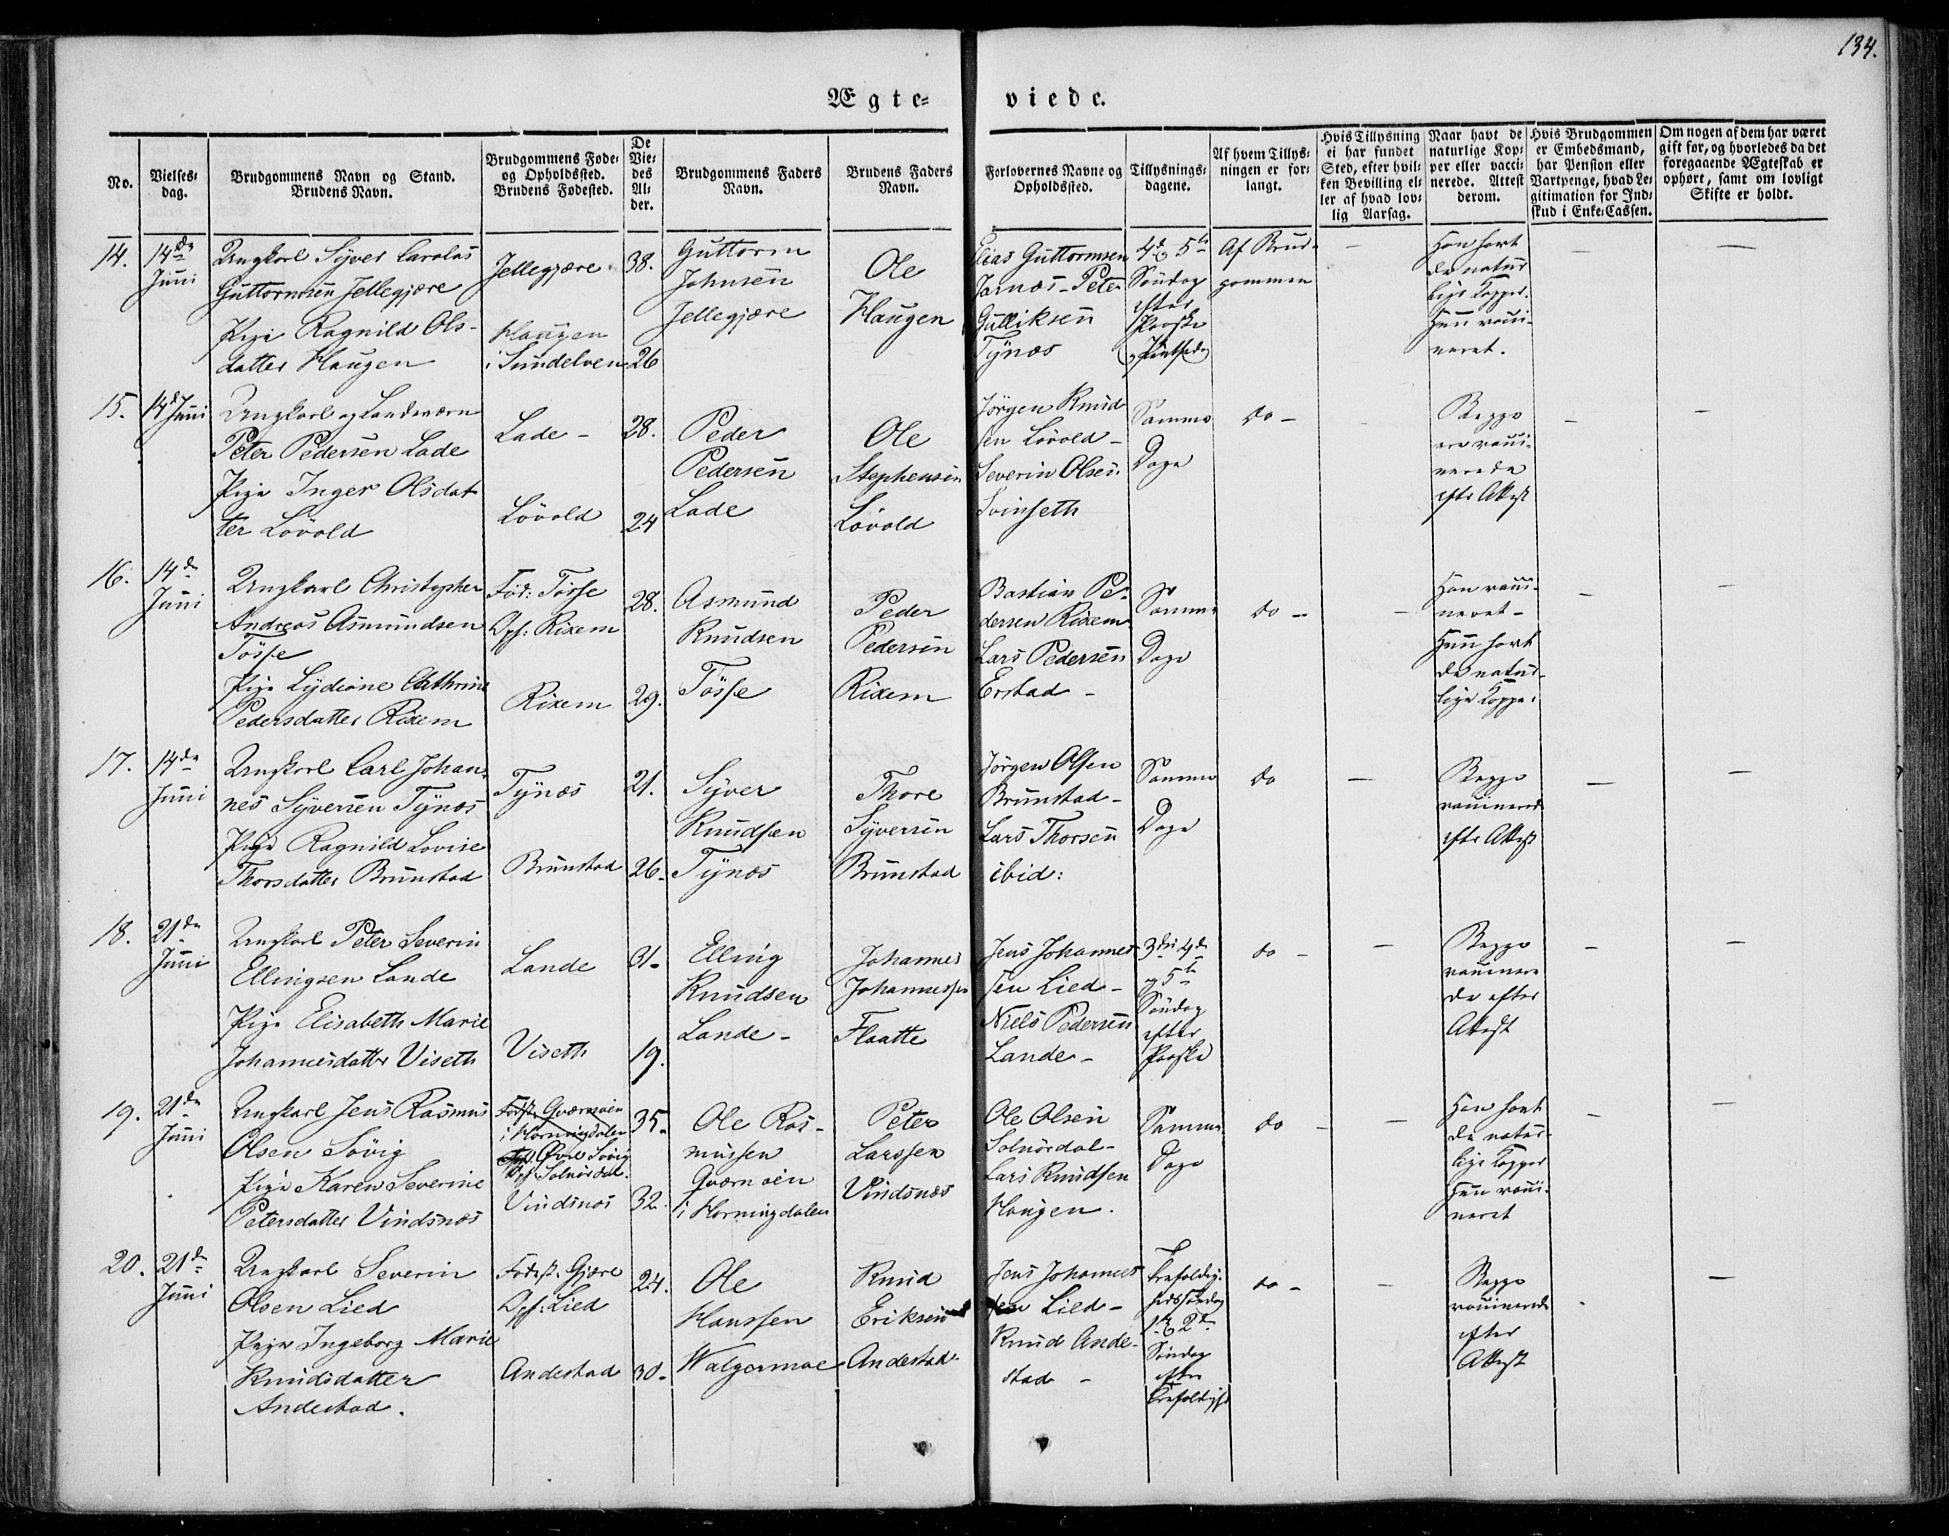 134.
Ægte-
viede.
No.
Vielses-
dag.
Brudgommens Navn og Stand.
Brudens Navn.
Brudgommens Føde-
og Opholdssted.
Brudens Fødested.
De
Vie-
des
Al-
der.
Brudgommens Faders
Navn.
Brudens Faders
Navn.
Forlovernes Navne og
Opholdssted.
Tillysnings-
dagene.
Af hvem Tillys-
ningen er for-
langt.
Hvis Tillysning
ei har fundet
Sted, efter hvil-
ken Bevilling el-
ler af hvad lov-
lig Aarsag.
Naar havt de
naturlige Kop-
per eller vacci-
nerede. Attest
derom.
Hvis Brudgommen
er Embedsmand,
har Pension eller
Vartpenge, hvad Le-
gitimation for Ind-
skud i Enke-Cassen.
Om nogen af dem har været
gift før, og hvorledes da det
foregaaende Ægteskab er
ophørt, samt om lovligt
Skifte er holdt.
14.
14de
Juni
Ungkarl Syver Carolus
Guttormsen Jellegjære
Pige Ragnild Ols-
datter Haugen
Jellegjære
Haugen
i Sundelven
38.
26
Guttorm
Johnsen
Jellegjære
Ole
Haugen
Elias Guttormsen
Jarnæs - Peter
Gulliksen
Tynæs
4de & 5te
Søndag
efter
Paaske
Af Brud-
gommen
—
Han havt
de natur
lige Kopper.
Hun vacci-
neret.
—
—
15.
14de Juni
Ungkarl og Landeværn
Peter Pedersen Lade
Pige Inger Olsdat
ter Løvold
Lade -
Løvold
28.
24
Peder
Pedersen
Lade
Ole
Stephensen
Løvold
Jørgen Knud
sen Løvold -
Severin Olsen
Svinseth
Samme
Dage
do -
Begge
ere vacci-
nerede
efter Attest
—
—
16.
14de
Juni
Ungkarl Christopher
Andreas Asmundsen
Tøsse
Pige Lydiane Cathrine
Pedersdatter Rixem
Fød: Tøsse
Opf: Rixem
Rixem
28.
29.
Asmund
Knudsen
Tøsse
Peder
Pedersen
Rixem
Bastian Pe-
dersen Rixem
Lars Pedersen
Erstad -
Samme
Dage
do -
—
Han vacci-
neret -
Hun havt
de natur-
lige Kopper
—
—
17.
14de
Juni
Ungkarl Carl Johan-
nes Syversen Tynæs
Pige Ragnild Lovise
Thorsdatter Brunstad
Tynæs
Brunstad
21.
26.
Syver
Knudsen
Tynæs
Thore
Syversen
Brunstad
Jørgen Olsen
Brunstad -
Lars Thorsen
ibid:
Samme
Dage
do
—
Begge
vaccinerede
efter Attest
—
—
18.
21de
Juni
Ungkarl Peter Severin
Ellingsen Lande
Pige Elisabeth Marie
Johannesdatter Viseth
Lande
Viseth
31.
19.
Elling
Knudsen
Lande -
Johannes
Johannessen
Flaatte
Jens Johannes
sen Lied -
Niels Pedersen
Lande -
3die 4de
og 5te
Søndag
efter
Paaske
do -
—
Begge
vaccinere
de efter
Attest
—
—
19.
21de
Juni
Ungkarl Jens Rasmus
Olsen Søvig
Pige Karen Severine
Petersdatter Vindsnæs
Fødst: Gværnøen
i Horningdalen
Øvre Søvig
Opf: Solnørdal.
Vindsnæs
35.
32.
Ole Ras-
mussen
Gværnøen
i Horningdalen
Peter
Larssen
Vindsnæs
Ole Olsen
Solnørdal -
Lars Knudsen
Haugen.
Samme
Dage
do -
—
Han havt
de natur-
lige Kopper
Hun vacci-
neret
—
—
20.
21de
Juni
Ungkarl Severin
Olsen Lied
Pige Ingeborg Marie
Knudsdatter
Andestad.
Fødest. Gjære
Opf: Lied
Andestad
24.
30.
Ole
Hanssen
Walgermoe
Knud
Eriksen
Andestad
Jens Johannes
sen Lied -
Knud Ande-
stad -
Trefoldig-
hedssøndag
1ste & 2den
Søndag
efter
Trefoldighed
do -
—
Begge
vaccinerede
efter
Attest
—